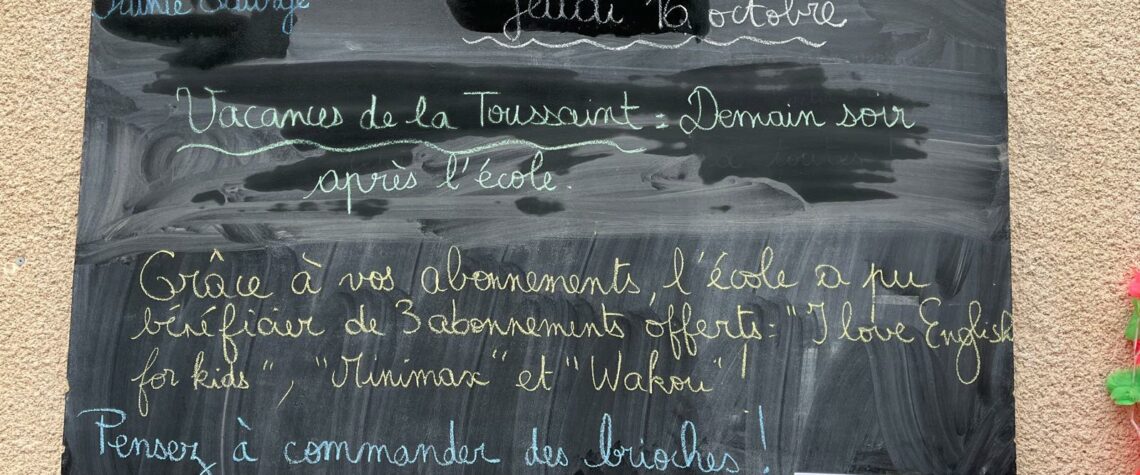 jeudi 16 octobre
Vacances de la Toussaint : Demain soir
après l'école.
Grâce à vos abonnements, l'école a pu
bénéficier de 3 abonnements offerts : "I love English
for kids", "Minimax" et "Wakou"!
Pensez à commander des brioches !